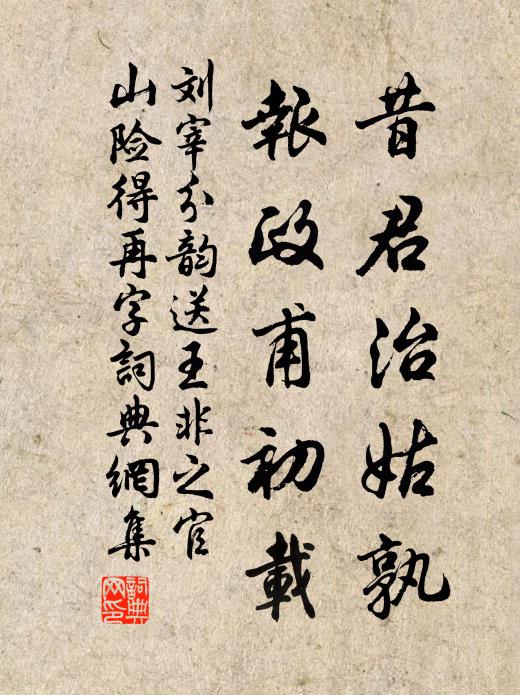 昔君治姑孰
報政甫初載
刘宰分韵送王非之官
山险得再字詞典網集
詞典网印